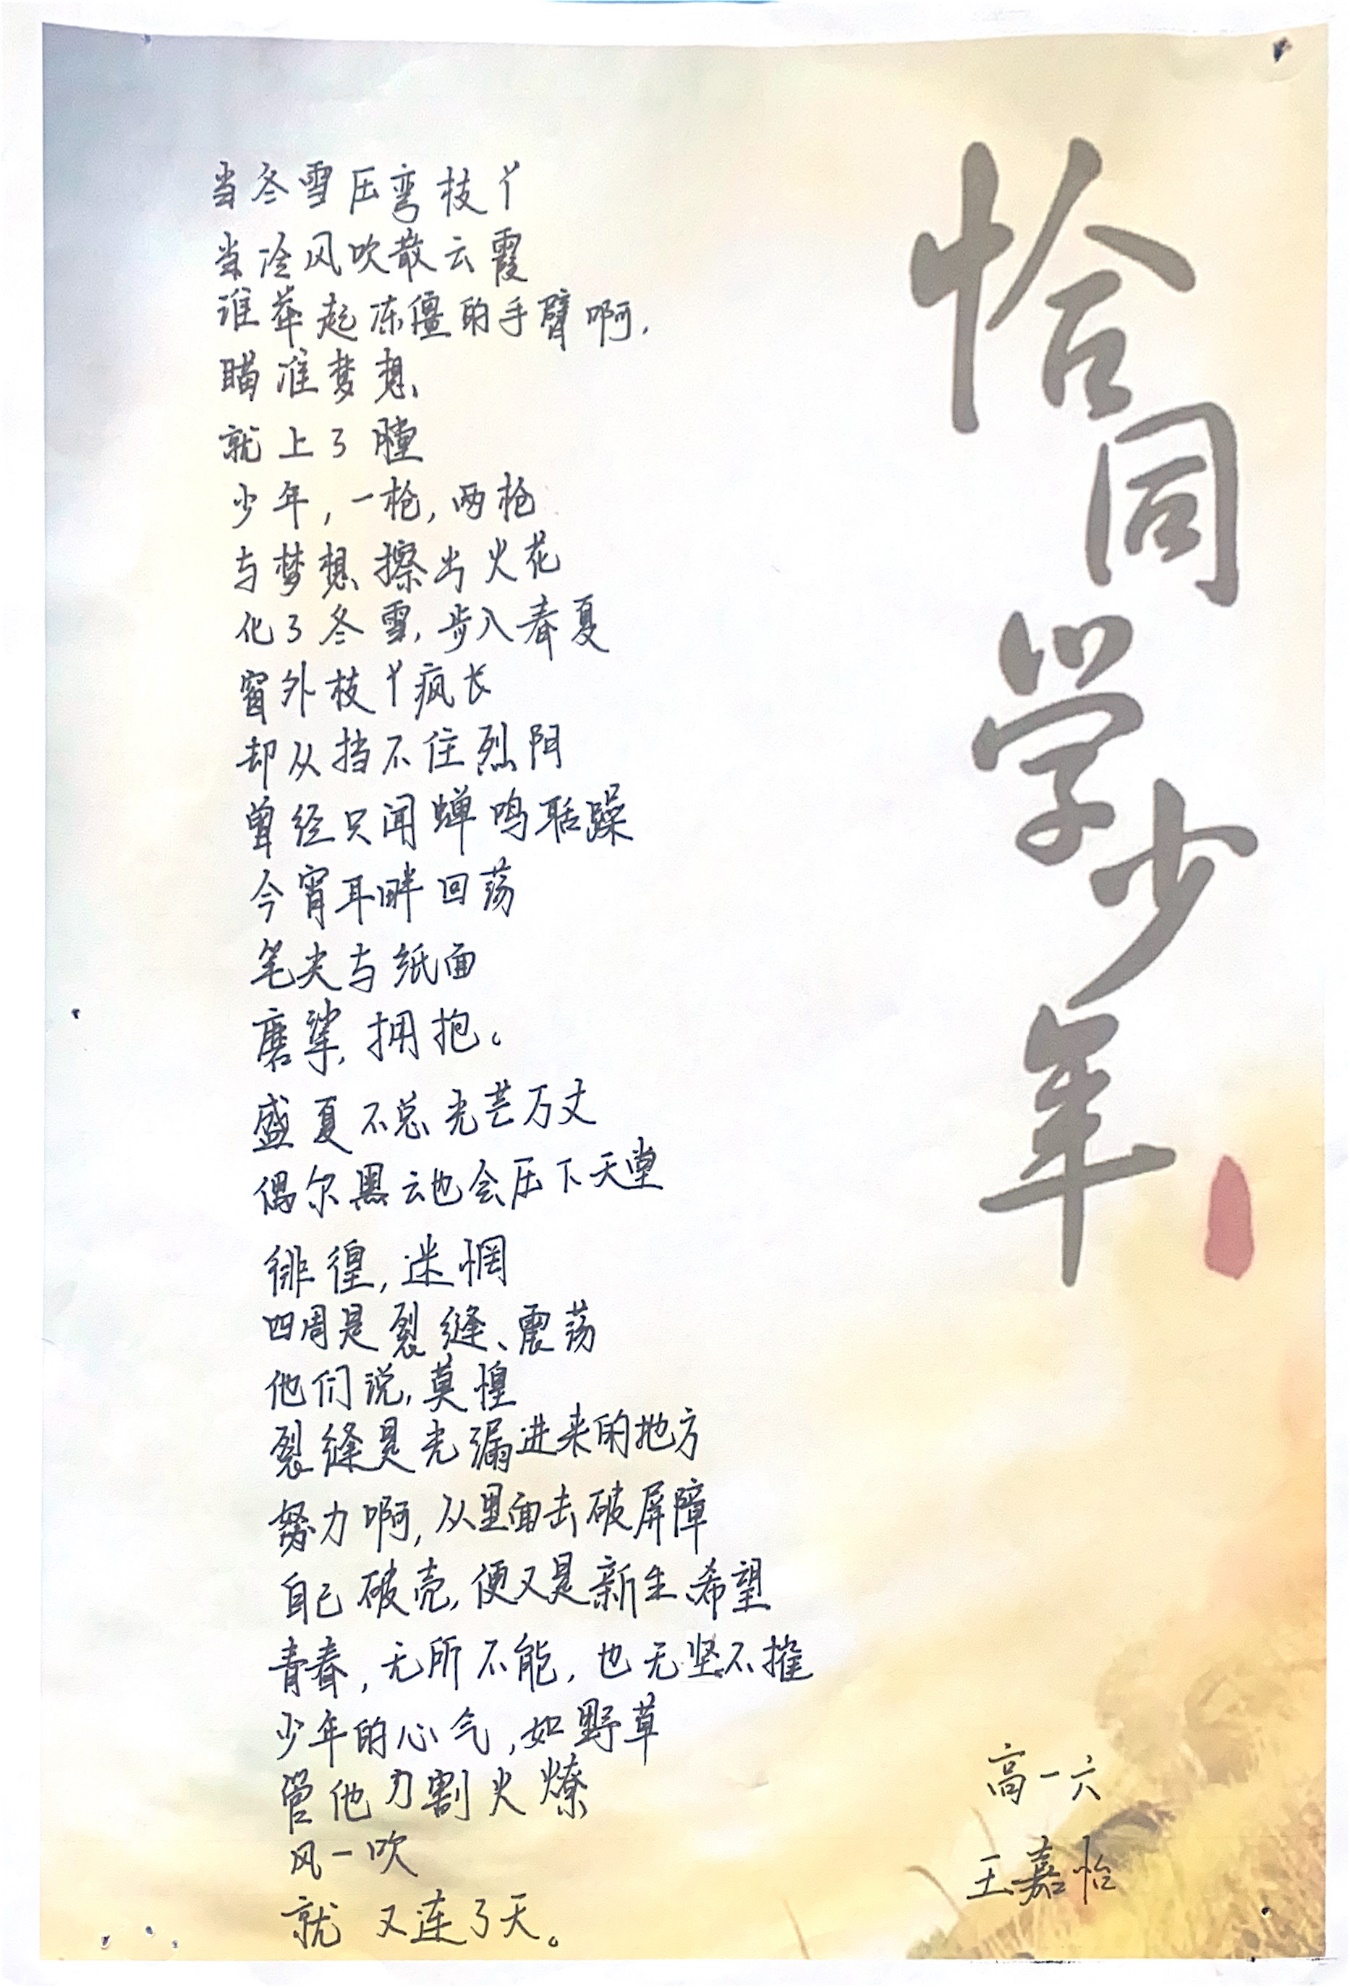 恰同学少年
当冬雪压弯枝丫
当冷风吹散云霞
谁举起冻僵的手臂啊，
瞄准梦想
就上了膛
少年，一枪，两枪
与梦想擦出火花
化了冬雪，步入春夏
窗外枝丫疯长
却从挡不住烈阳
曾经只闻蝉鸣聒躁
今宵耳畔回荡
笔尖与纸面
磨挲，拥抱。
盛夏不总光芒万丈
偶尔黑云也会压下天堂
徘徊，迷惘
四周是裂缝、震荡
他们说，莫惶
裂缝是光漏进来的地方
努力啊，从里面去破屏障
自己破壳，便又是新生、希望
青春，无所不能，也无坚不摧
少年的心气，如野草
管他刀割火燎
风一吹
就又连了天。
高一六
王嘉怡